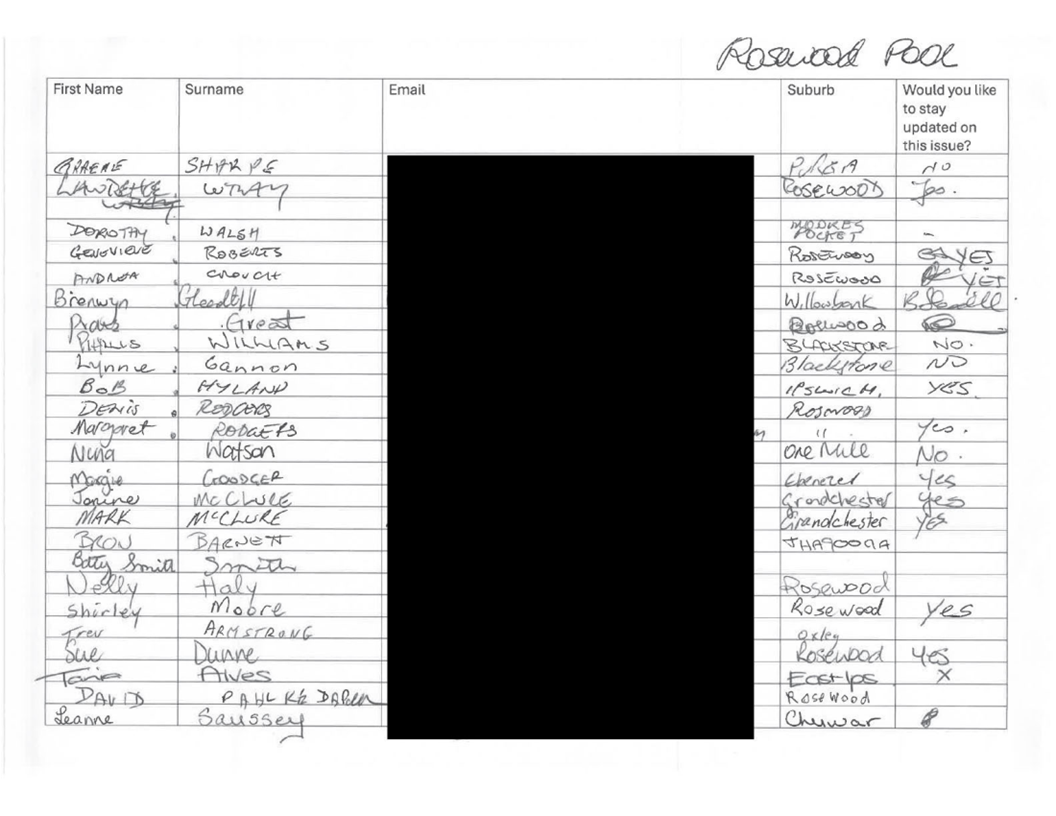 Rosewood Pool
First Name Surname Email Suburb Would you like to stay updated on this issue?
GRAEME SHARPE PURGA NO
LAWRENCE WRAY ROSEWOOD Yes.
DOROTHY WALSH MOORES POCKET -
GENEVIEVE ROBERTS ROSEWOOD YES
ANDREA CROUCH ROSEWOOD YES
Bronwyn Gleedhill Willowbank
Great Rosewood
PHYLLIS WILLIAMS BLACKSTONE NO.
Lynnie Gannon Blackstone NO
BOB HYLAND IPSWICH. YES.
DENIS RODGERS ROSEWOOD
Margaret RODGERS " Yes.
Nina Watson One Mile No.
Margie GOODGER Ebenezer Yes
Janine McCLURE Grandchester yes
MARK McCLURE Grandchester YES
BRON BARNETT THAGOONA
Betty Smith Smith
Nelly Haly Rosewood
Shirley Moore Rosewood Yes
Trev ARMSTRONG Oxley
Sue Dunne Rosewood Yes
Alves East Ips X
DAVID PAHLKE Rosewood
Leanne Saussey Chuwar